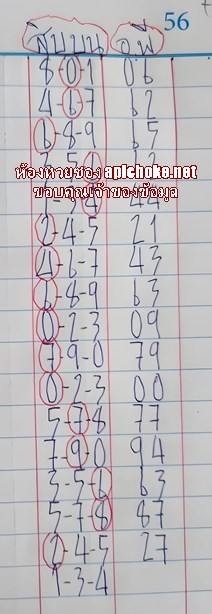 56
สิบบน จ.พี่
8-0-1 06
4-6-7 62
6-8-9 65
ห้องหวยซอง apichoke.net
ขอบคุณเจ้าของข้อมูล
4 44
2-4-5 21
4-6-7 43
6-8-9 63
0-2-3 09
7-9-0 79
0-2-3 00
5-7-8 77
7-9-0 94
3-5-6 63
5-7-8 87
2-4-5 27
1-3-4